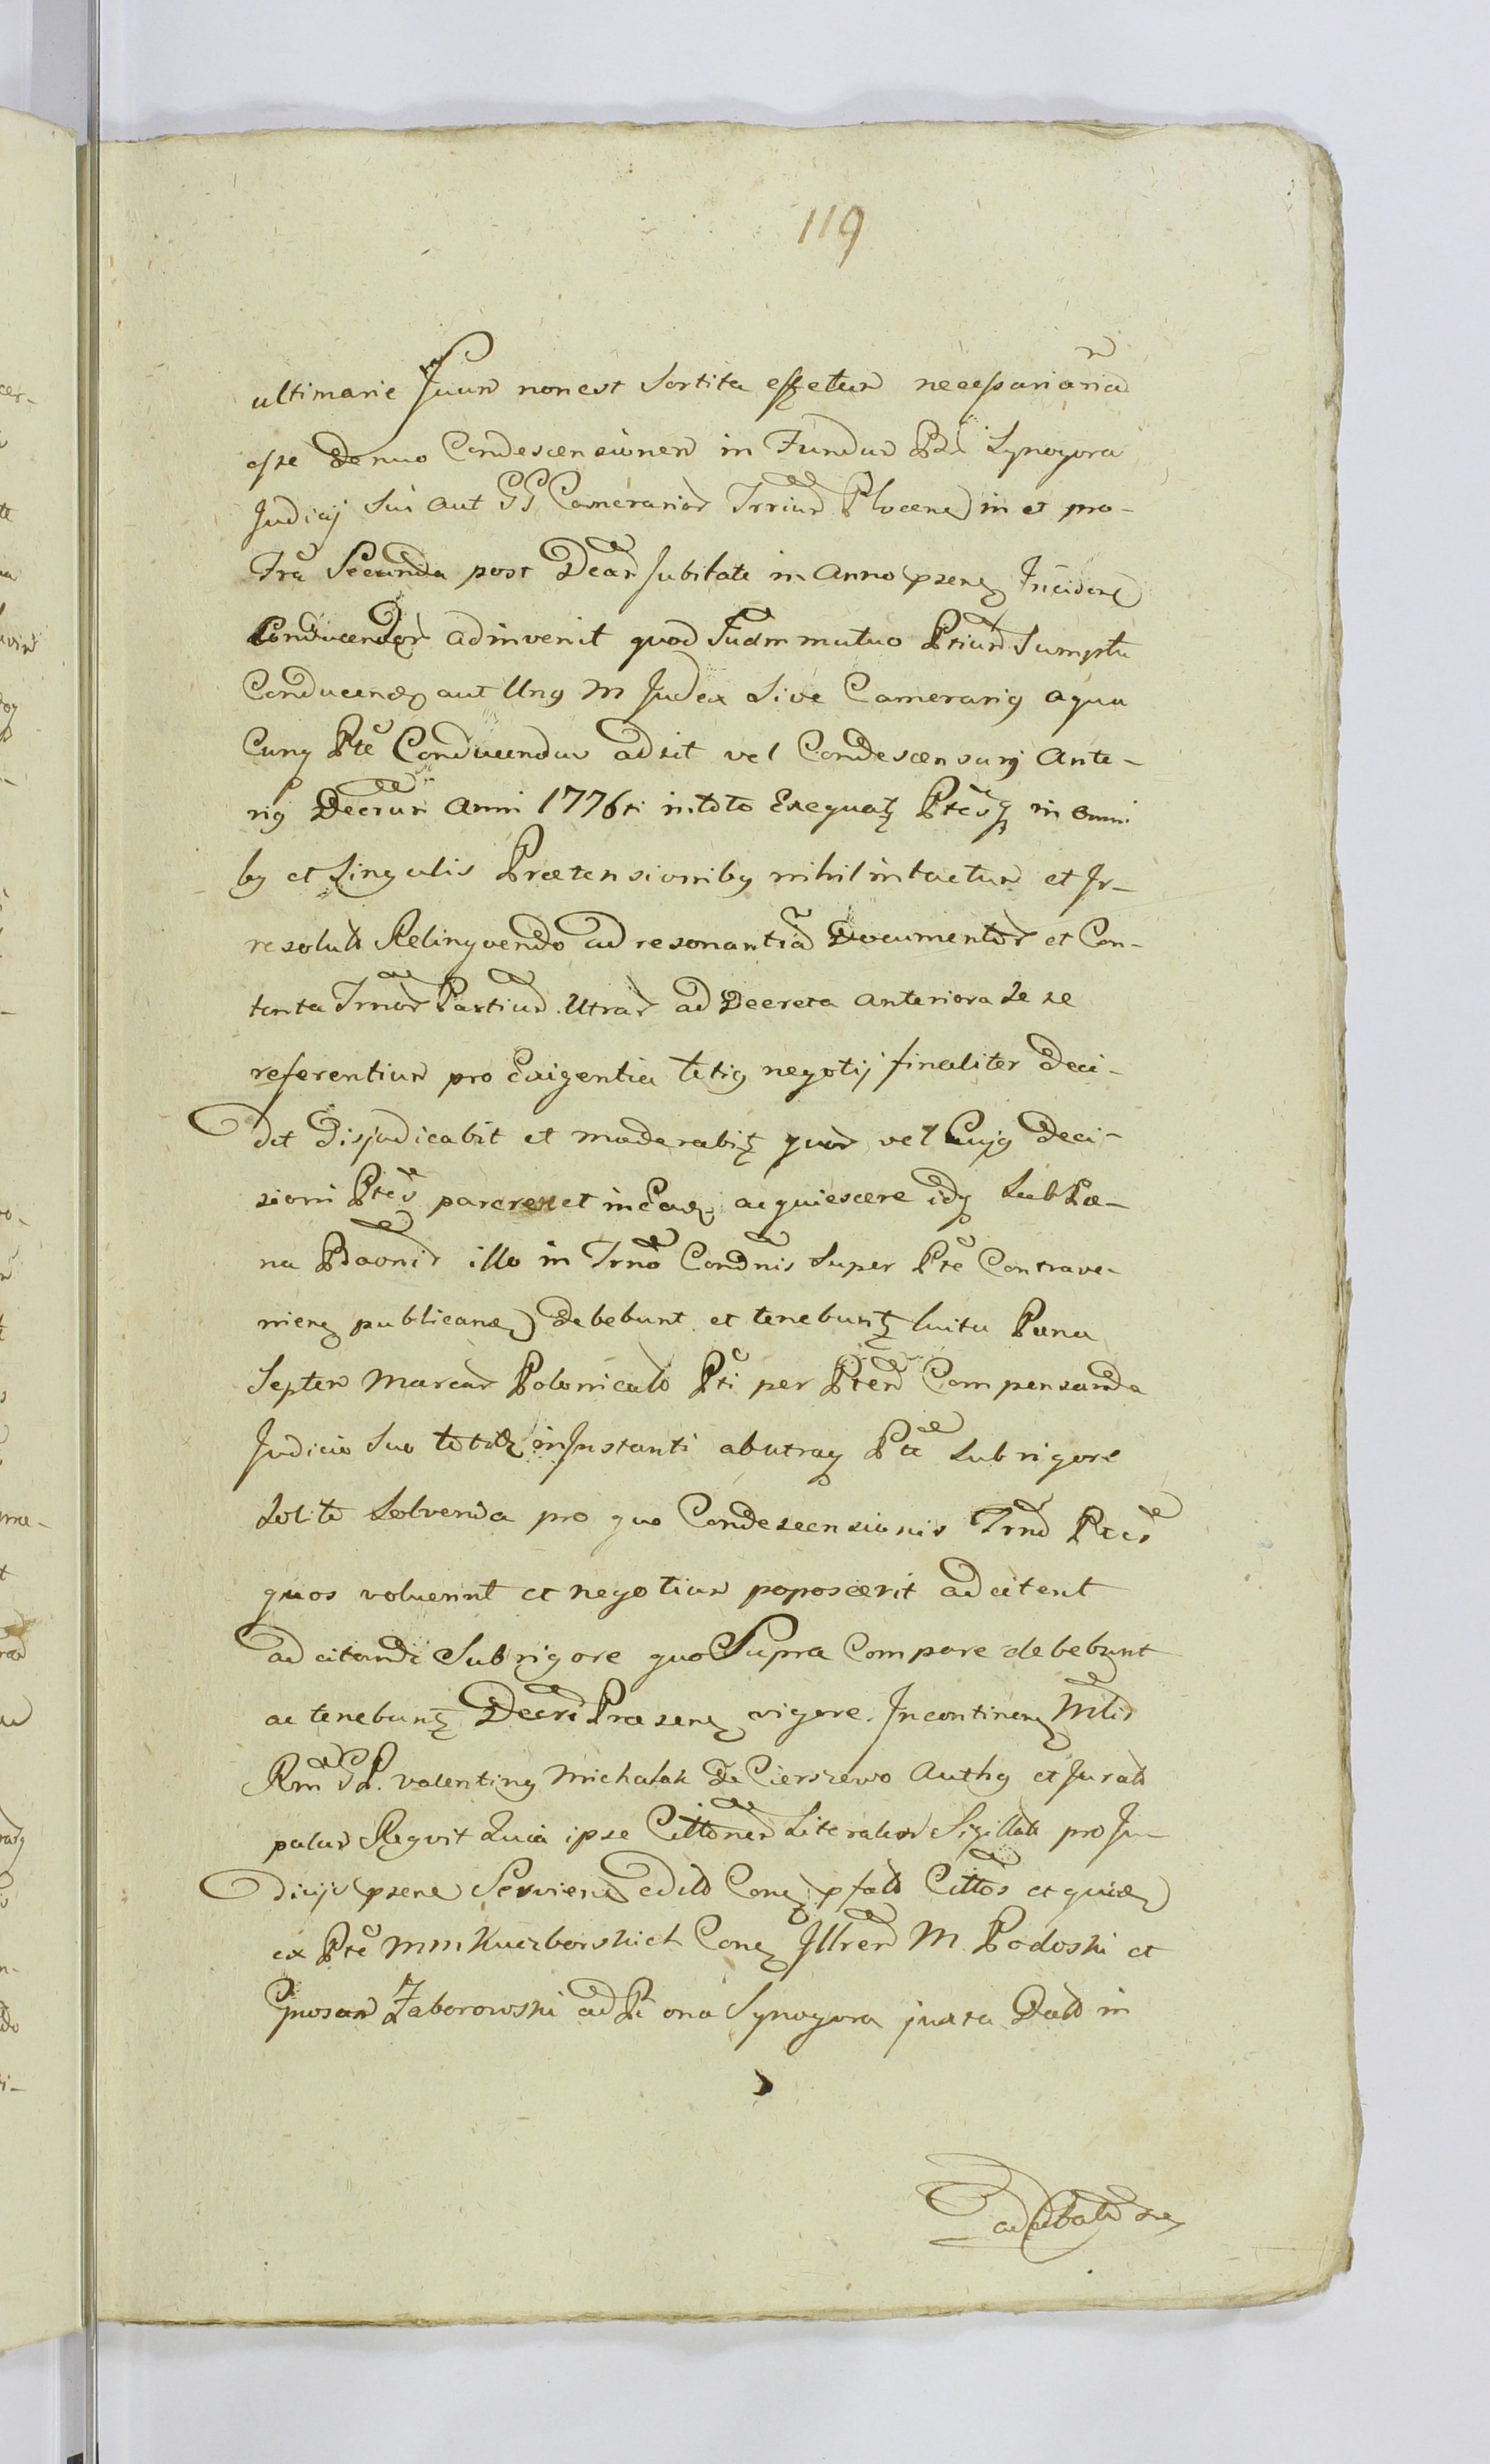 119
ultimarie Suum non est Sortita effectum necessariam
esse denuo Condescensionem in Fundum Bd Lynogora
Judicij Sui aut GG Camerarior Trrium Plocens in et pro-
Fra Secunda post Dcam Jubilate in Anno psenẽ Inciden
Conducendor adinvenit quod Judm mutuo Ptium Sumptu
Conducens aut Ung M Judex Sive Camerarig a qua
Cunq Pte Conducendus adsit vel Condescensurg Ante-
rig Decrum Anni 1776ti in toto Exequatz Ptesq in Omni
bg et Singulis Prætensionibg nihil intactum et Ir-
resolutu Relinqvendo ad resonantiã Documentor et Con-
tenta Trnor Partium Utrar ad Decreta anteriora Se se
referentium pro Exigentia totig negotij finaliter Deci-
det Disjudicabit et moderabitz quor vel Cujg Deci-
sioni Ptes parere et in Eadẽ acquiescere idq Sub Pæ-
na Baonis illo in Trno Condnis Super Pte Contrave-
nienẽ publicans debebunt et tenebuntz luita Pæna
Septem Marcar Polonicalu Pti per Ptem Compensanda
Judicio Suo totidẽ in Instanti ab utraq Pte Sub rigore
Solito Solvenda pro quo Condescensionis Trno Ptes
quos voluerint et negotium poposcerit adcitent
adcitandi Sub rigore quo Supra Compare debebunt
ac tenebuntz Decri Præsenẽ vigore. Incontinenẽ Mlis
Rm G P. Valenting Michalak De Cierszewo Authg et Jurato
palam Reqvit Quia ipse Cittonem Literalem Sigillatu pro Ju-
dicijs psens Serviens edito Conẽ pfato Cittos et quidẽ
ex Pte MM Kuczborskich Conẽ Illrem M. Podoski et
Gnosum Zaborowski ad Bona Lynogora juxta Dato in